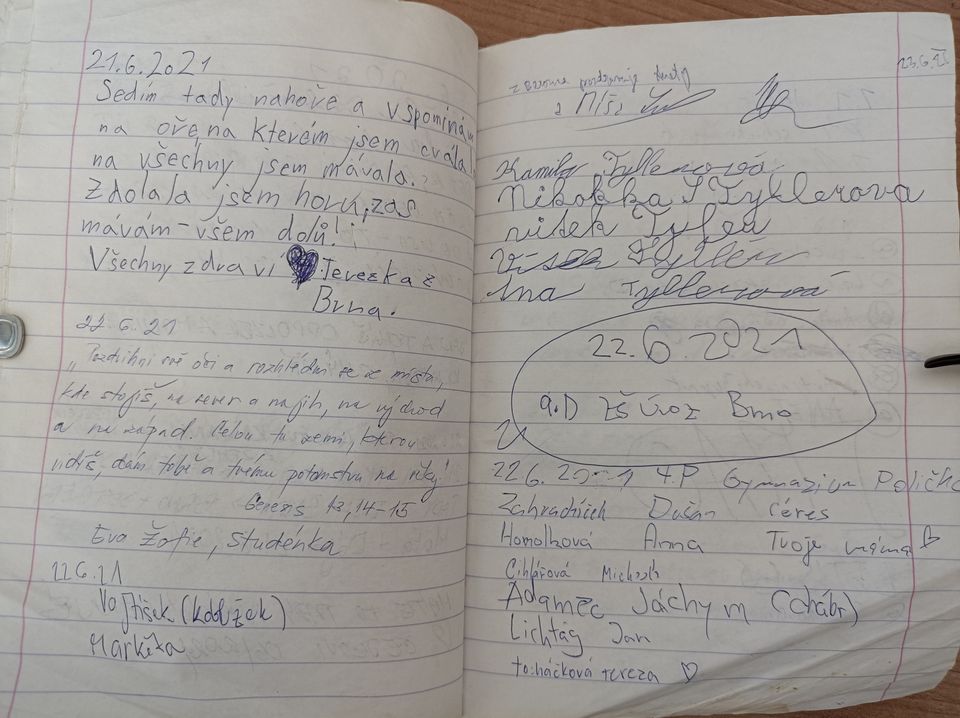 21.6.2021
Sedím tady nahoře a vspomínám
na oře, na kterém jsem cválala.
na všechny jsem mávala.
Zdolala jsem horu, zas
mávám - všem dolů!
Všechny zdraví Terezka z
Brna.
22.6.21
„Pozdvihni své oči a rozhlédni se ze místa,
kde stojíš, na sever a na jih, na východ
a na západ. Celou tu zemi, kterou
vidíš, dám tobě a tvému potomstvu na věky!
Genesis 13,14-15
Eva Žofie, Studénka
22.6.21
Vojtíšek (kobžek)
Markéta
23.6.21
z
a Míša
Kamila Tyllerová
Tyllerova
Ina Tyllerová
22.6.2021
9.D ZŠ Úvoz Brno
22.6.2021 4.P Gymnázium Polička
Zahradníček Dušan Céres
Homolková Anna Tvoje máma
Cihlářová
Adamec Jáchym (chábr)
Lichtág Jan
Tereza